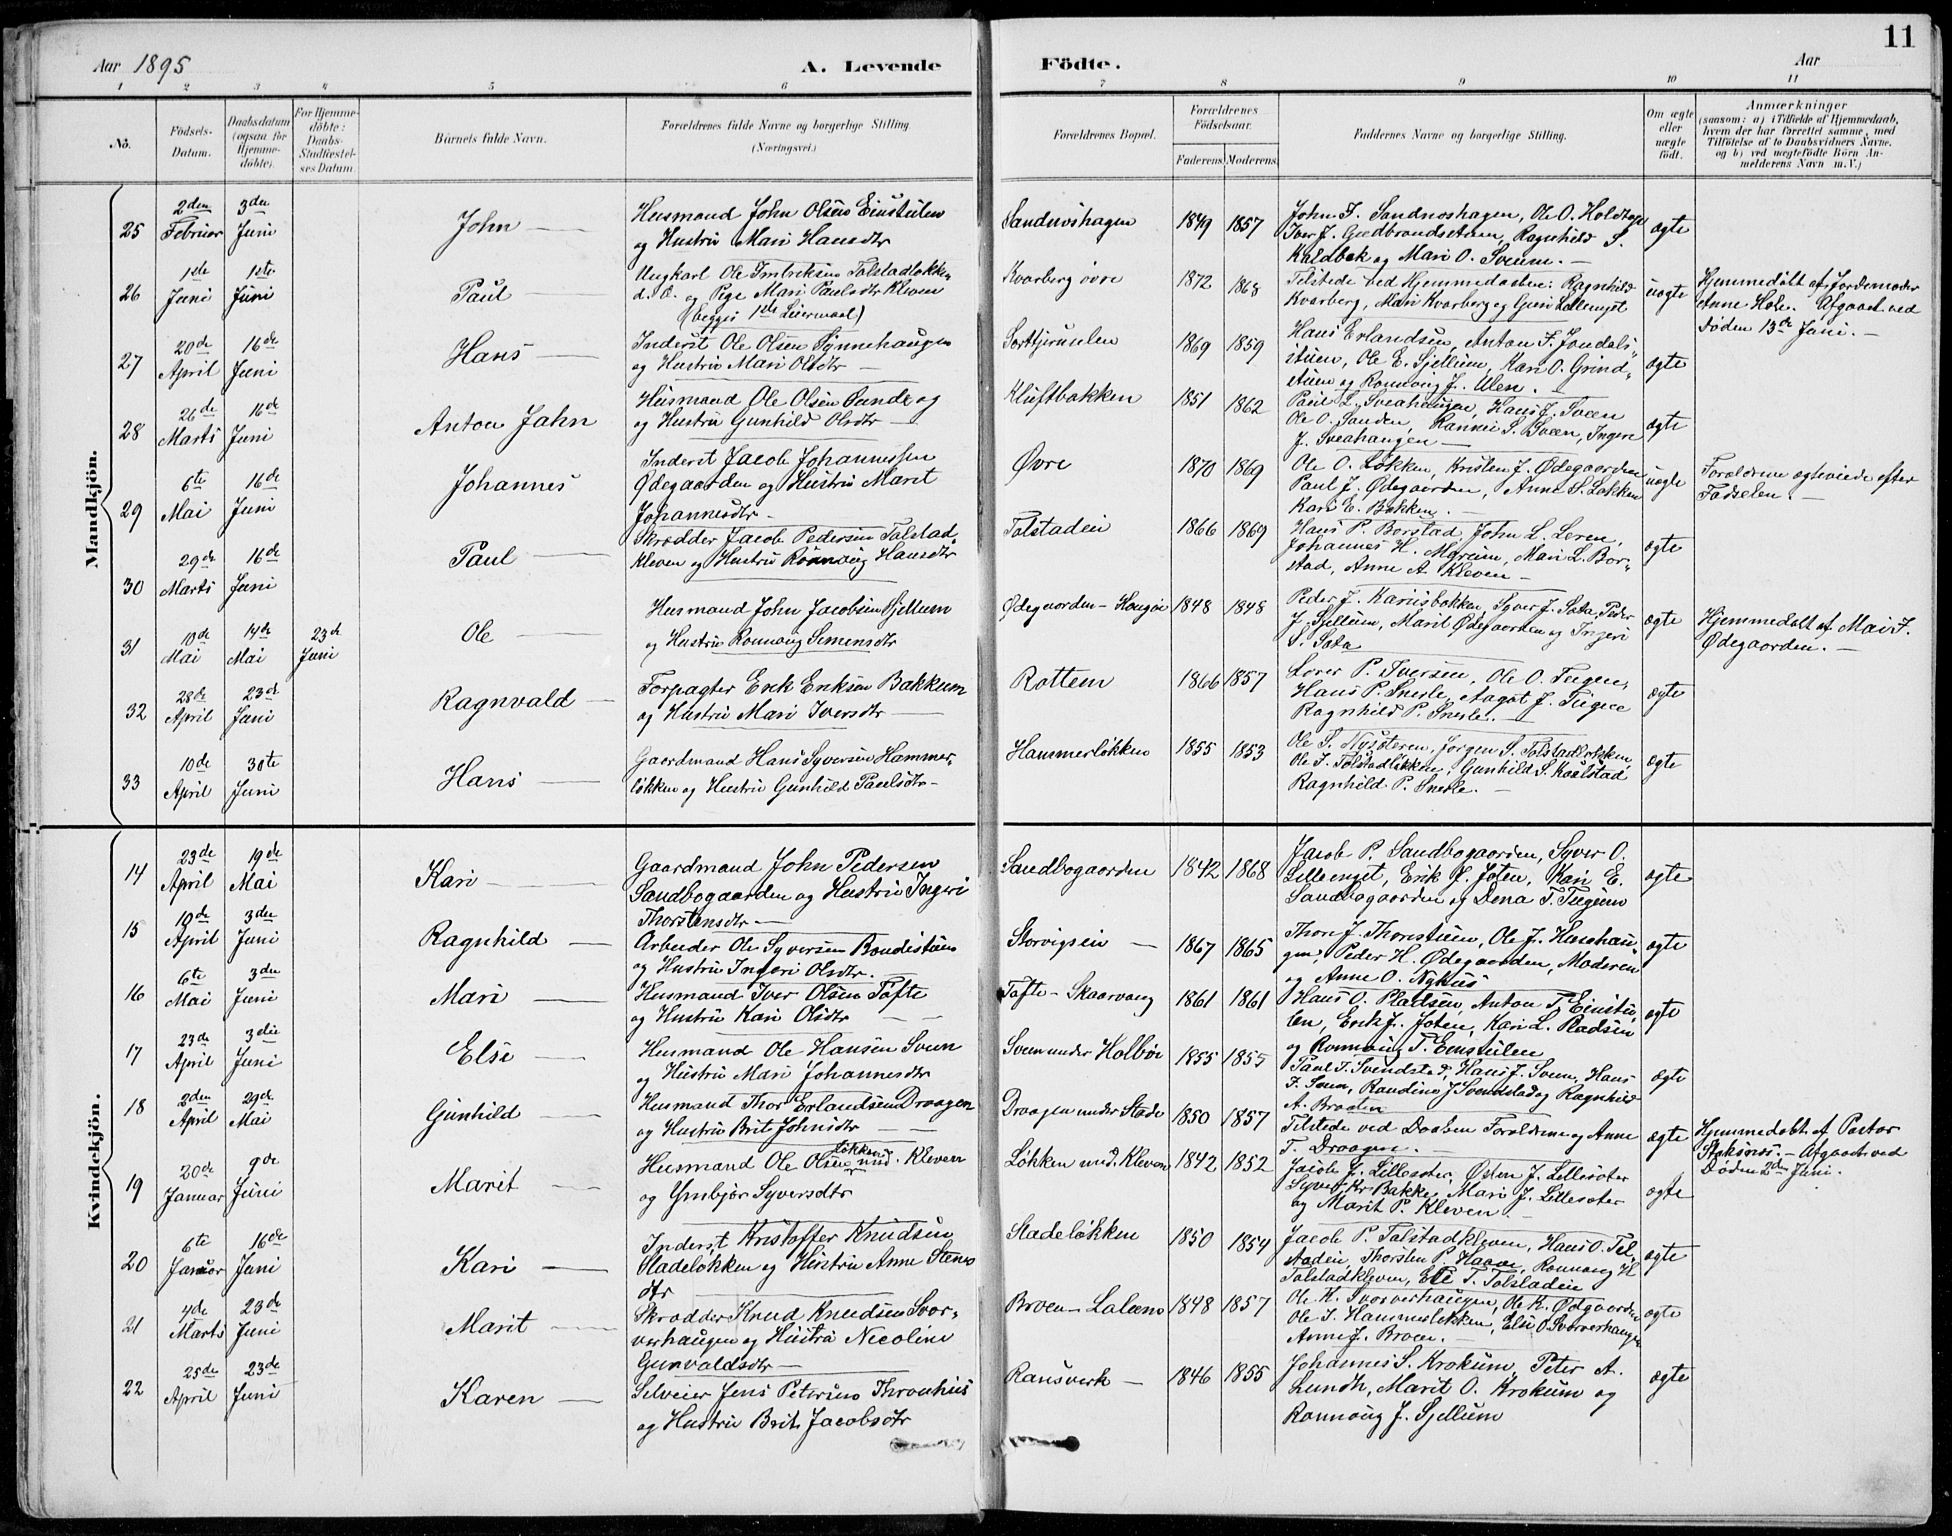 11
Aar 1895
A. Levende Födte.
Aar
1 2 3 4 5 6 7 8 9 10 11
No.
Födsels-Datum.
Daabsdatum (ogsaa for Hjemmedöbte).
For Hjemmedöbte: Daabs-Stadfæstelses Datum.
Barnets fulde Navn.
Forældrenes fulde Navne og borgerlige Stilling
(Næringsvei.)
Forældrenes Bopæl.
Forældrenes Födselsaar.
Faderens. Moderens.
Faddernes Navne og borgerlige Stilling.
Om ægte eller uægte födt.
Anmærkninger
(saasom: a) i Tilfælde af Hjemmedaab, hvem der har forrettet samme, med Tilföielse af to Daabsvidners Navne, og b) ved uægtefödte Börn Anmelderens Navn m.V.)
Mandkjön.
25 2den Februar 3die Juni John Husmand John Olsen Einstulen
og Hustru Mari Hansdtr
Sandnoshagen 1849 1857 John J. Sandnoshagen, Ole O.
Iver J. Gudbrandstuen, Ragnhild S.
Kaldbak og Mari O. Sveum. ægte
26 1ste Juni 1ste Juni Paul Ungkarl Ole Imbriksen Tolstadløkken
d.S. og Pige Mari Paulsdtr Kleven
(begges 1ste Leiermaal)
Kvarberg øvre 1872 1868 Tilstede ved Hjemmedaaben: Ragnhild
Kvarberg, Mari Kvarberg og Guri Lillenget uægte
Hjemmedøbt af Jordemoder
Anne Hole. Afgaaet ved
Døden 13de Juni.
27 20de April 16de Juni Hans Inderst Ole Olsen Synnehaugen
og Hustru Mari Olsdtr
1869 1859 Hans Erlandsen, Anton F. Jondals-
stuen, Ole E. Sjellum, Kari O. Grind-
stuen og Rønnoug J. Ulen. ægte
28 26de Marts 16de Juni Anton Jahn Husmand Ole Olsen Sande og
og Hustru Gunhild Olsdtr
Kluftbakken 1851 1862 Paul L. Sveahaugen, Hans J. Sveen
Ole O. Sanden, Rannei S. Sveen, Ingeri
J. Sveahaugen ægte
29 6te Mai 16de Juni Johannes Inderst Jacob Johannessen
Ødegaarden og Hustru Marit
Johannesdtr
Øvre 1870 1869 Ole O. Løkken, Kristen J. Ødegaarden
Paul J. Ødegaarden, Anne S. Løkken
Kari E. Bakken. uægte
Forældrene ægteviede efter
Fødselen.
30 29de Marts 16de Juni Paul Skrædder Jacob Pedersen Tolstad-
kleven og Hustru Rønnoug Hansdtr
Tolstadeie 1866 1869 Hans P. Borstad, John L. Leren,
Johannes H. Moreim, Mari L. Bor-
stad, Anne A. Kleven ægte
31 10de Mai 14de Mai 23de Juni Ole Husmand John Jacobsen Sjellum
og Hustru Rønnoug Simensdtr
Ødegaarden 1848 1848 Peder J. Kariusbakken, Syver J. Sata, Peder
J. Sjellum, Marit Ødegaarden og Ingeri
S. Sata ægte
Hjemmedøbt af Mari J.
Ødegaarden.
32 28de April 23de Juni Ragnvald Forpagter Erik Eriksen Bakkum
og Hustru Mari Iversdtr
Rottem 1866 1857 P. Iversen, Ole O.
Hans P. Snerle, Aagot J.
Ragnhild P. Snerle. ægte
33 10de April 30te Juni Hans Gaardmand Hans Syversen Hammer-
løkken og Hustru Gunhild Paulsdtr
Hammerløkken 1855 1853 Ole S. Nysæteren, Jørgen S. Tolstadløkken,
Ole J. Tolstadløkken, Gunhild S. Kolstad
Ragnhild P. Snerle. ægte
Kvindekjön.
14 23de April 19de Mai Kari Gaardmand John Pedersen
Sandbogaarden og Hustru Ingeri
Thorstensdtr
Sandbogaarden 1842 1868 Jacob P. Sandbogaarden, Syver O.
Lillenget, Erik J. Joten, Kari E.
Sandbogaarden og Dena T. ægte
15 19de April 3die Juni Ragnhild Arbeider Ole Syversen Bondestuen
og Hustru Ingeri Olsdtr.
Storvigseie 1867 1865 Thor J. Thorestuen, Ole J.
Peder H. Ødegaarden, Moderen
og Anne O. Nyhus ægte
16 6te Mai 3die Juni Mari Husmand Iver Olsen Tofte
og Hustru Kari Olsdtr
Tofte-Skaarvang 1861 1861 Hans O. Pladsen, Anton T. Einstu-
len, Erik J. Joten, Kari L. Pladsen
og Rønnoug T. Einstulen ægte
17 23de April 3die Juni Else Husmand Ole Hansen Sveen
og Hustru Mari Johannesdtr
Sveen under Holbøe 1855 1855 Paul J. Svendstad, Hans J. Sveen, Hans
J. Sveen, Randine J. Svendstad og Ragnhild
A. Braaten ægte
18 2den April 29de Mai Gunhild Husmand Thor Erlandsen Draagen
og Hustru Brit Johnsdtr
Draagen under Stade 1850 1857 Tilstede ved Daaben Forældrene og Anne
T. Draagen. ægte
Hjemmedøbt af Pastor
Stoksnes. Afgaaet ved
Døden 2den Juni.
19 20de Januar 9de Juni Marit Husmand Ole Olsen Løkken und. Kleven
og Ymbjør Syversdtr
Løkken und. Kleven 1842 1852 Jacob J. Lillesæter, Østen J. Lillesæter
Syver Kr. Bakke, Mari J. Lillesæter
og Marit P. Kleven ægte
20 6te Januar 16de Juni Kari Inderst Kristoffer Knudsen
Stadeløkken og Hustru Anne Stens
dtr
Stadeløkken 1850 1854 Jacob P. Tolstadkleven, Hans O. Tol-
stadeie, Thorsten P. Haave, Rønnoug H
Tolstadkleven, Else T. Tolstadeie ægte
21 4de Marts 23de Juni Marit Skrædder Knud Knudsen Svor-
verhaugen og Hustru Nicoline
Gunvaldsdtr
Broen-Lalum 1848 1857 Ole K. Svorverhaugen, Ole K. Ødegaarden
Ole J. Hammerløkken, Else O. Svorverhaugen
Anne J. Broen. ægte
22 25de April 23de Juni Karen Selveier Jens Petersen Thronhus
og Hustru Brit Jacobsdtr
Ransverk 1846 1855 Johannes S. Krokum, Peter A.
Lundh, Marit O. Krokum og
Rønnoug J. Sjellum ægte